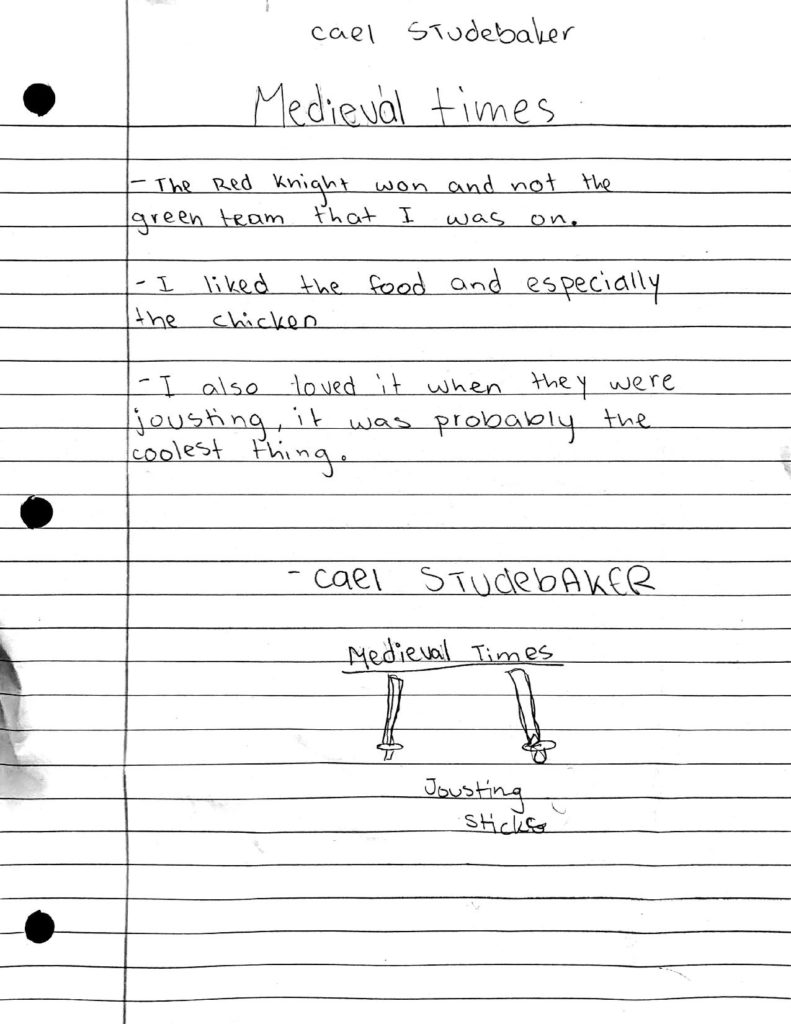 cael Studebaker
Medieval times
- The Red Knight won and not the
green team that I was on.
- I liked the food and especially
the chicken
- I also loved it when they were
jousting, it was probably the
coolest thing.
- cael STUdebAKER
Medieval Times
Jousting
Sticks